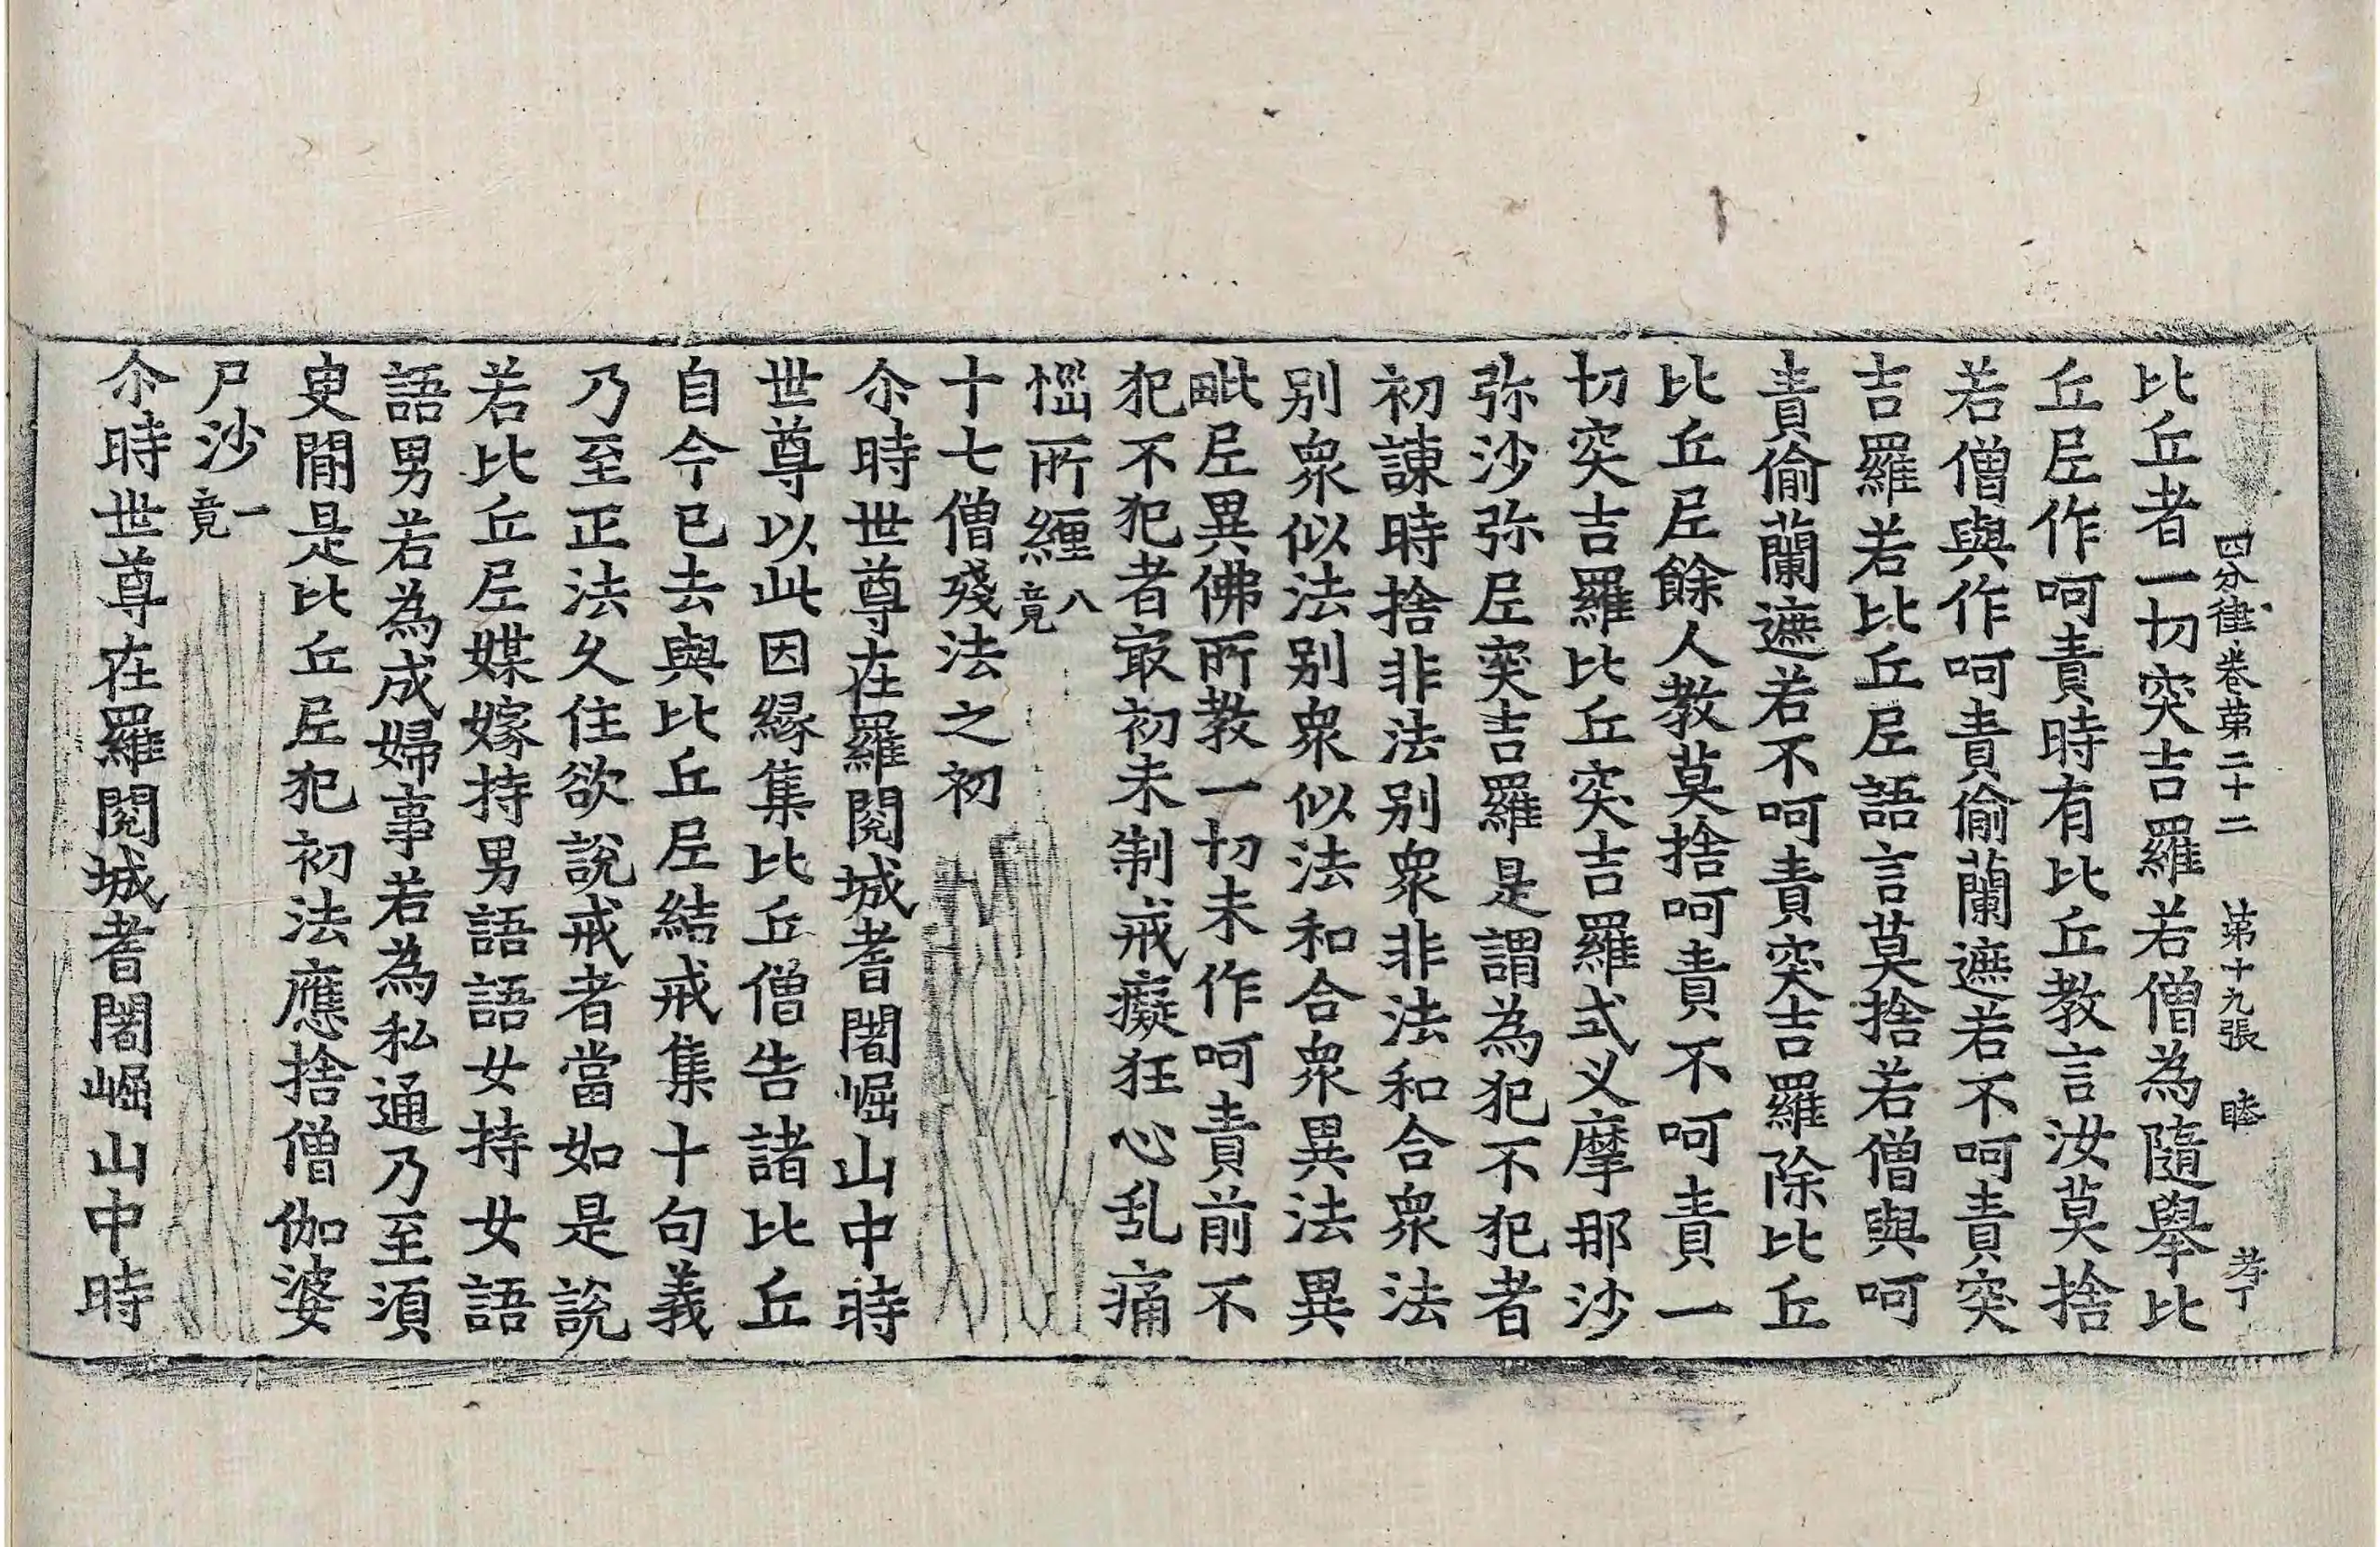 四分律卷第二十二　第十九張　睦　孝丁
比丘者一切突吉羅若僧為隨舉比
丘𡰱作呵責時有比丘教言汝莫捨
若僧與作呵責偷蘭遮若不呵責突
吉羅若比丘𡰱語言莫捨若僧與呵
責偷蘭遮若不呵責突吉羅除比丘
比丘𡰱餘人教莫捨呵責不呵責一
切突吉羅比丘突吉羅式叉摩那沙
弥沙弥𡰱突吉羅是謂為犯不犯者
初諫時捨非法別衆非法和合衆法
別衆似法別衆似法和合衆異法異
毗𡰱異佛所教一切未作呵責前不
犯不犯者㝡初未制戒癡狂心乱痛
惱所纏八竟
十七僧殘法之初
尒時世尊在羅閱城耆闍崛山中時
世尊以此因緣集比丘僧告諸比丘
自今已去與比丘𡰱結戒集十句義
乃至正法久住欲說戒者當如是說
若比丘𡰱媒嫁持男語語女持女語
語男若為成婦事若為私通乃至須
臾閒是比丘𡰱犯初法應捨僧伽婆
尸沙一竟
尒時世尊在羅閱城耆闍崛山中時